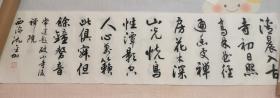 清晨入古
寺初日照
高林
通幽處禪
房花木深
山光悦鳥
性潭影空
人心萬籟
此俱寂但
餘鐘磬音
常建題破山寺後
禪院